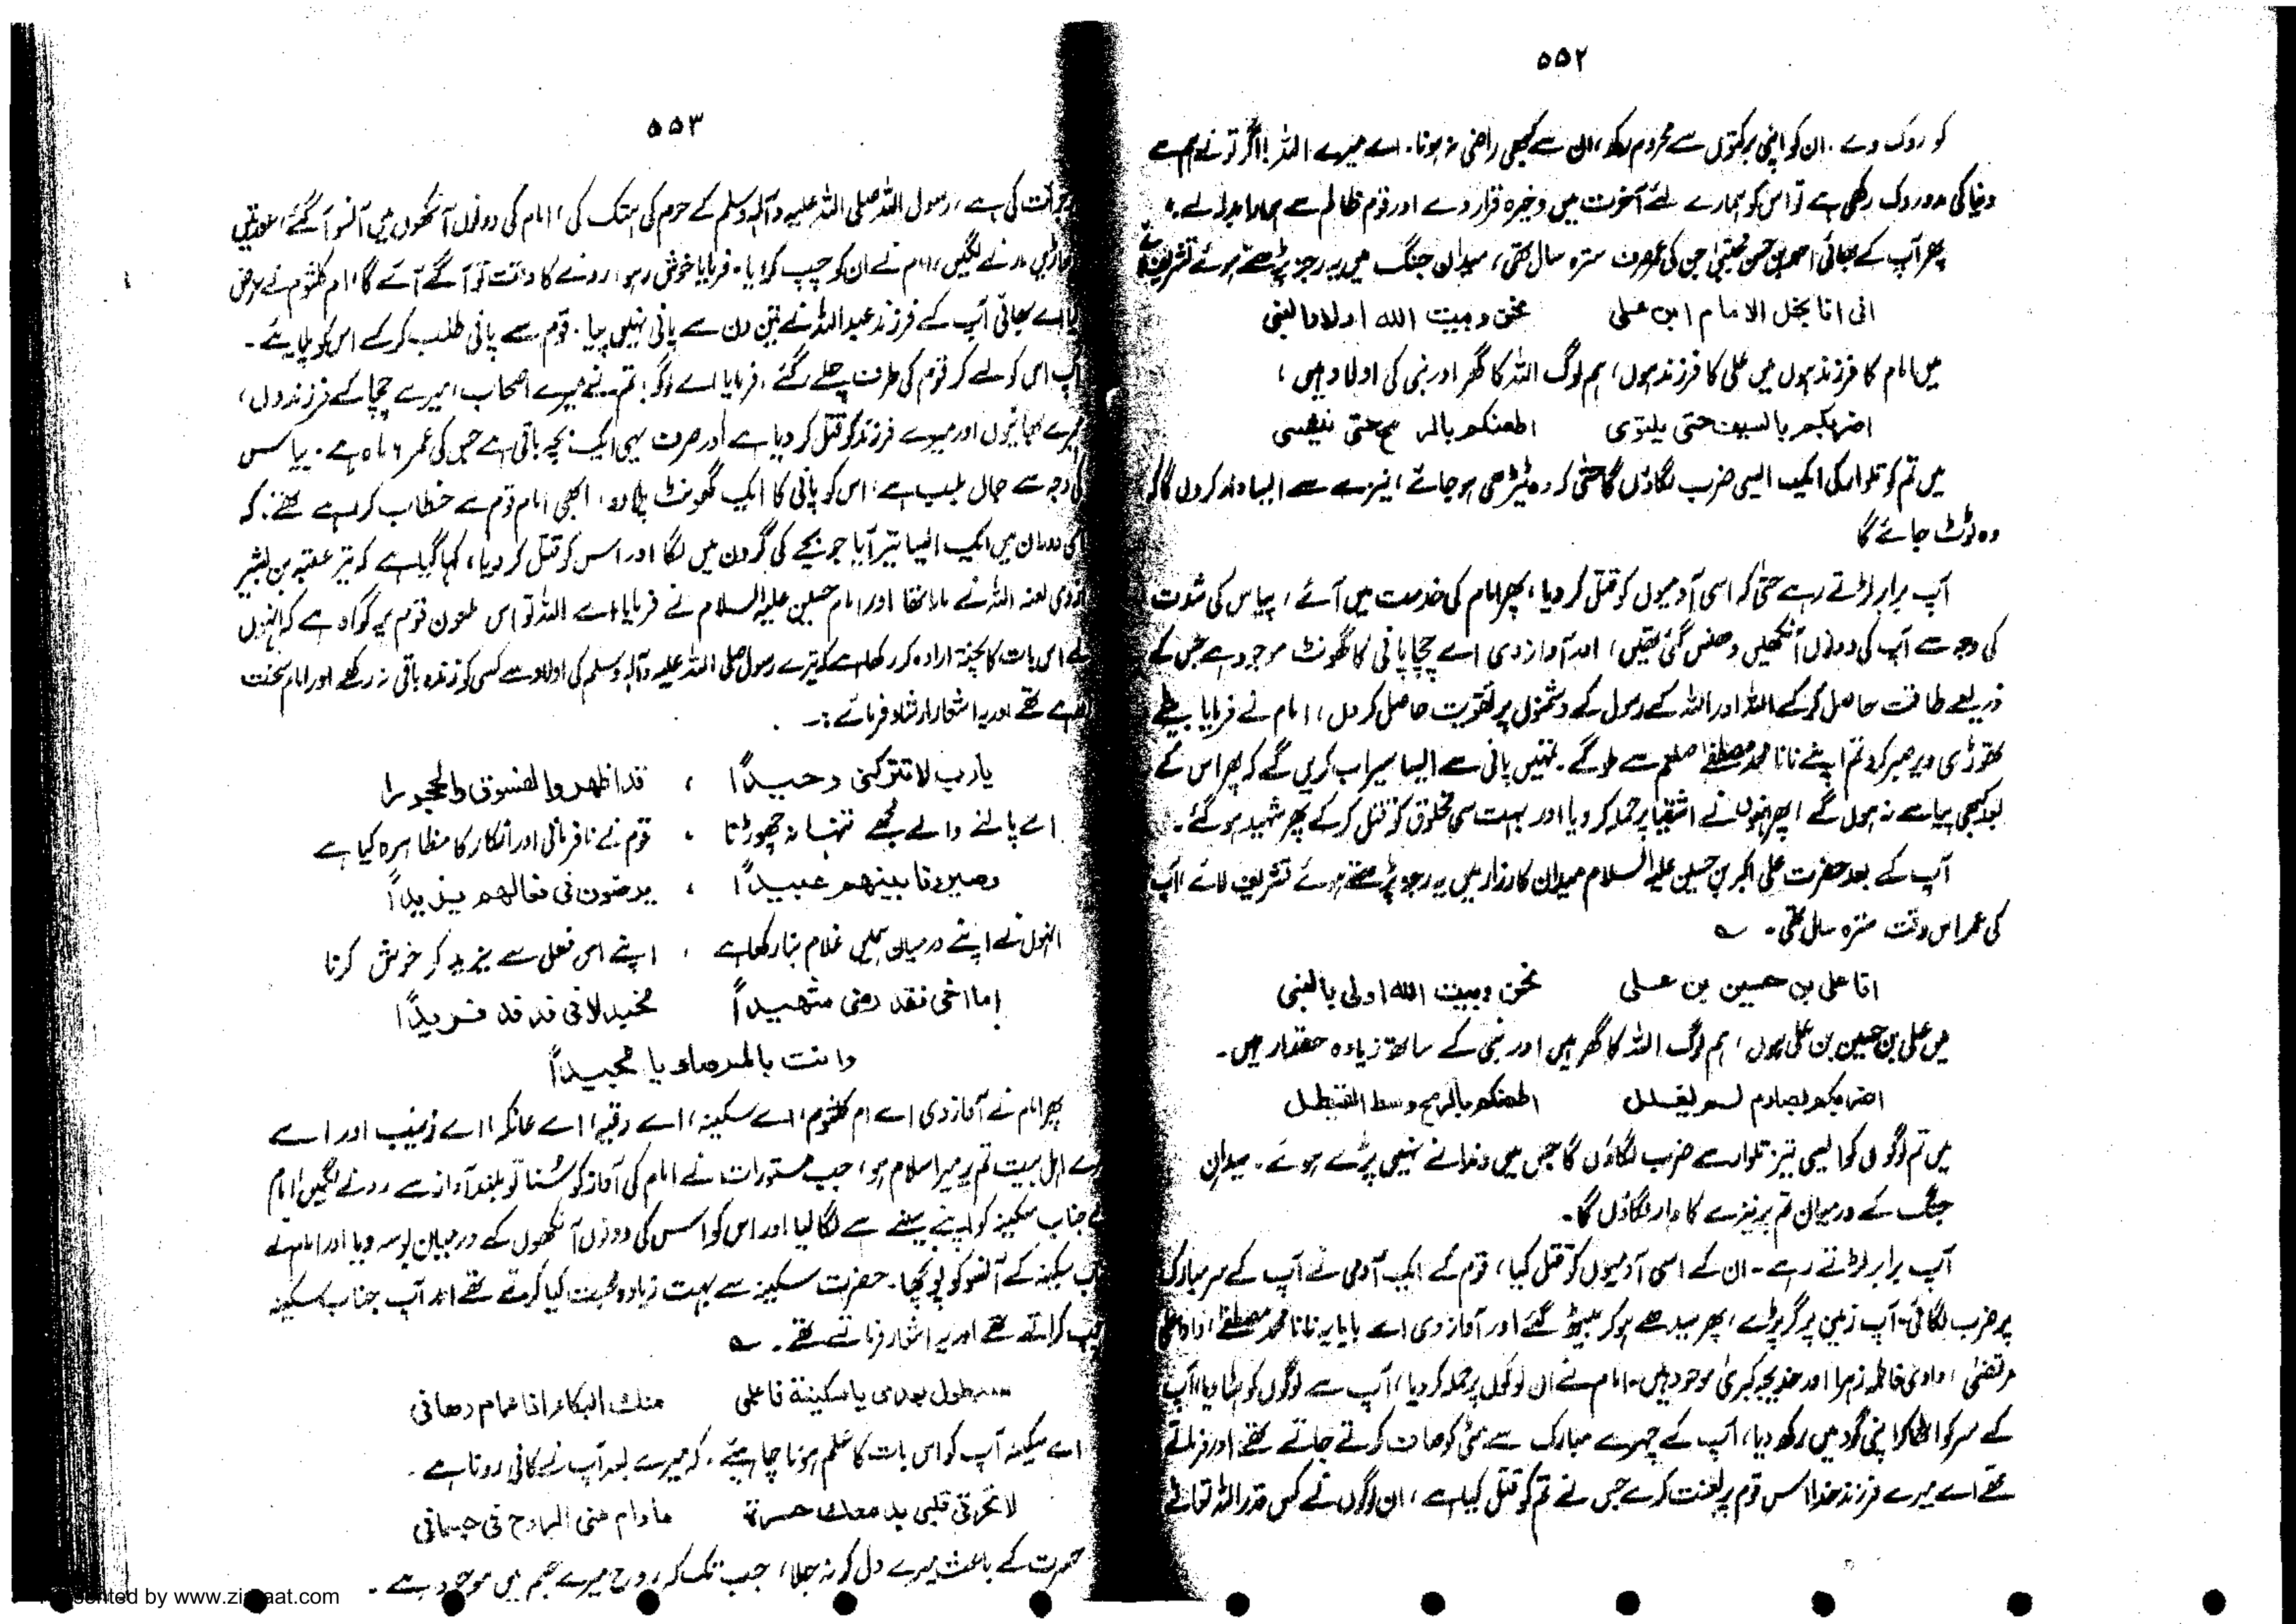 ۵۵۲
کو روک دے۔ ان کو اپنی برکتوں سے محروم رکھ، ان سے کبھی راضی نہ ہونا۔ اے میرے اللہ! اگر تو نے ہم سے
دنیا کی مدد روک رکھی ہے تو اس کو ہمارے لئے آخرت میں ذخیرہ قرار دے اور قوم ظالم سے ہمارا بدلہ لے۔"
پھر آپ کے بھائی احمد بن حسن مجتبیٰ جن کی عمر صرف سترہ سال تھی، میدان جنگ میں یہ رجز پڑھتے ہوئے تشریف
انی انا نجل الامام ابن علی نحن وبیت الله اولاد النبی
میں امام کا فرزند ہوں میں علی کا فرزند ہوں، ہم لوگ اللہ کا گھر اور نبی کی اولاد ہیں،
اضربکم بالسیف حتی یلتوی اطعنکم بالرمح حتی
میں تم کو تلوار کی ایک ایسی ضرب لگاؤں گا حتیٰ کہ وہ ٹیڑھی ہو جائے، نیزے سے ایسا وار کروں گا کہ
وہ ٹوٹ جائے گا
آپ برابر لڑتے رہے حتیٰ کہ اسی آدمیوں کو قتل کر دیا، پھر امام کی خدمت میں آئے، پیاس کی شدت
کی وجہ سے آپ کی دونوں آنکھیں دھنس گئی تھیں، اور آواز دی اے چچا پانی کا گھونٹ موجود ہے جس کے
ذریعے طاقت حاصل کر کے اللہ اور اللہ کے رسول کے دشمنوں پر تقویت حاصل کر لوں، امام نے فرمایا بیٹے
تھوڑی دیر صبر کرو تم اپنے نانا محمد مصطفےٰ صلعم سے ملو گے۔ تمہیں پانی سے ایسا سیراب کریں گے کہ پھر اس کے
بعد کبھی پیاسے نہ ہوں گے، پھر انہوں نے اشقیا پر حملہ کر دیا اور بہت سی مخلوق کو قتل کر کے پھر شہید ہو گئے۔
آپ کے بعد حضرت علی اکبر بن حسین علیہ السلام میدان کارزار میں یہ رجز پڑھتے ہوئے تشریف لائے، آپ
کی عمر اس وقت سترہ سال تھی۔ ؎
انا علی بن حسین بن علی نحن وبیت الله اولی بالنبی
میں علی بن حسین بن علی ہوں، ہم لوگ اللہ کا گھر ہیں اور نبی کے ساتھ زیادہ حقدار ہیں۔
اضربکم بصارم لم یفلل اطعنکم بالرمح وسط القسطل
میں تم لوگوں کو ایسی تیز تلوار سے ضرب لگاؤں گا جس میں دندانے نہیں پڑے ہوئے۔ میدان
جنگ کے درمیان تم پر نیزے کا وار لگاؤں گا۔
آپ برابر لڑتے رہے۔ ان کے اسی آدمیوں کو قتل کیا، قوم کے ایک آدمی نے آپ کے سر مبارک
پر ضرب لگائی۔ آپ زمین پر گر پڑے، پھر سیدھے ہو کر بیٹھ گئے اور آواز دی اے بابا یہ نانا محمد مصطفےٰ، دادا علی
مرتضیٰ، دادی فاطمہ زہرا اور خدیجہ کبریٰ موجود ہیں۔ امام نے ان لوگوں پر حملہ کر دیا، آپ سے لوگوں کو ہٹا دیا، آپ
کے سر کو اٹھا کر اپنی گود میں رکھ دیا، آپ کے چہرے مبارک سے مٹی کو صاف کرتے جاتے تھے اور فرماتے
تھے اے میرے فرزند خدا اس قوم پر لعنت کرے جس نے تم کو قتل کیا ہے، ان لوگوں نے کس قدر اللہ تعالیٰ
۵۵۳
جرأت کی ہے، رسول اللہ صلی اللہ علیہ وآلہ وسلم کے حرم کی ہتک کی، امام کی دونوں آنکھوں میں آنسو آ گئے، عورتیں
رونے لگیں، امام نے ان کو چپ کرایا۔ فرمایا خوش رہو، رونے کا وقت تو آگے آئے گا، ام کلثوم نے عرض
کیا اے بھائی آپ کے فرزند عبداللہ نے تین دن سے پانی نہیں پیا۔ قوم سے پانی طلب کر کے اس کو پلایئے۔
آپ اس کو لے کر قوم کی طرف چلے گئے۔ فرمایا اے لوگو! تم نے میرے اصحاب، میرے چچا کے فرزندوں،
میرے بھائیوں اور میرے فرزند کو قتل کر دیا ہے اور صرف یہی ایک بچہ باقی ہے جس کی عمر ۶ ماہ ہے۔ پیاس
کی وجہ سے جاں بلب ہے، اس کو پانی کا ایک گھونٹ پلا دو، ابھی امام قوم سے خطاب کر رہے تھے۔ کہ
اسی دوران میں ایک ایسا تیر آیا جو بچے کی گردن میں لگا اور اس کو قتل کر دیا، کہا گیا ہے کہ تیر عقبہ بن بشیر
ازدی لعنہ اللہ نے مارا تھا اور امام حسین علیہ السلام نے فرمایا اے اللہ تو اس ملعون قوم پر گواہ ہے کہ انہوں
نے اس بات کا پختہ ارادہ کر رکھا ہے کہ تیرے رسول صلی اللہ علیہ وآلہ وسلم کی اولاد سے کسی کو زندہ باقی نہ رکھے اور امام سخت
تھے اور یہ اشعار ارشاد فرمائے :۔
یا رب لا تترکنی وحیداً ، قد اظهروا الفسوق والجحودا
اے پالنے والے مجھے تنہا نہ چھوڑنا ، قوم نے نافرمانی اور انکار کا مظاہرہ کیا ہے
وصیرونا بینهم عبیداً ، یرضون فی فعالهم یزیداً
انہوں نے اپنے درمیان ہمیں غلام بنا رکھا ہے ، اپنے اس فعل سے یزید کو خوش کرنا
اما اخی فقد مضی شهیداً مجدلا فی فدفد فریداً
وانت بالمرصاد یا مجیداً
پھر امام نے آواز دی اے ام کلثوم، اے سکینہ، اے رقیہ، اے عاتکہ، اے زینب اور اے
میرے اہل بیت تم پر میرا سلام ہو، جب مستورات نے امام کی آواز کو سنا تو بلند آواز سے رونے لگیں، امام
نے جناب سکینہ کو اپنے سینے سے لگا لیا اور اس کو اس کی دونوں آنکھوں کے درمیان بوسہ دیا اور امام نے
سکینہ کے آنسو کو پونچھا۔ حضرت سکینہ سے بہت زیادہ محبت کیا کرتے تھے اور آپ جناب سکینہ
چپ کراتے تھے اور یہ اشعار فرماتے تھے۔ ؎
سیطول بعدی یا سکینة فاعلمی منك البکاء اذا الحمام دهانی
اے سکینہ آپ کو اس بات کا علم ہونا چاہیئے۔ کہ میرے بعد آپ نے کافی رونا ہے۔
لا تحرقی قلبی بدمعك حسرة مادام منی الروح فی جسمانی
حسرت کے باعث میرے دل کو نہ جلا، جب تک کہ روح میرے جسم میں موجود ہے۔
Presented by www.ziaraat.com